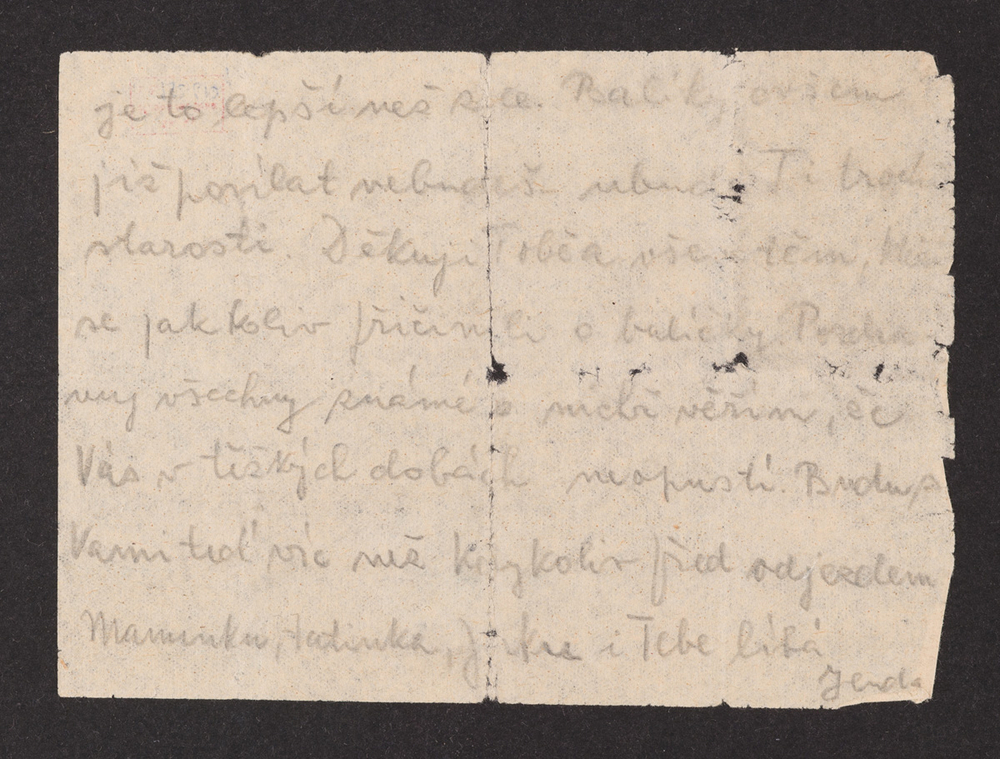 je to lepší než zde. Balíky ovšem
již posílat nebudeš ubude Ti troch
starostí. Děkuji Tobě a všem těm, kteří
se jakkoliv přičinili o balíčky. Pozdra
vuj všechny známé o nichž věřím, že
Vás v těžkých dobách neopustí. Budu s
Vámi teď víc než kdykoliv před odjezdem
Maminku, tatínka, i Tebe líbá
Jenda